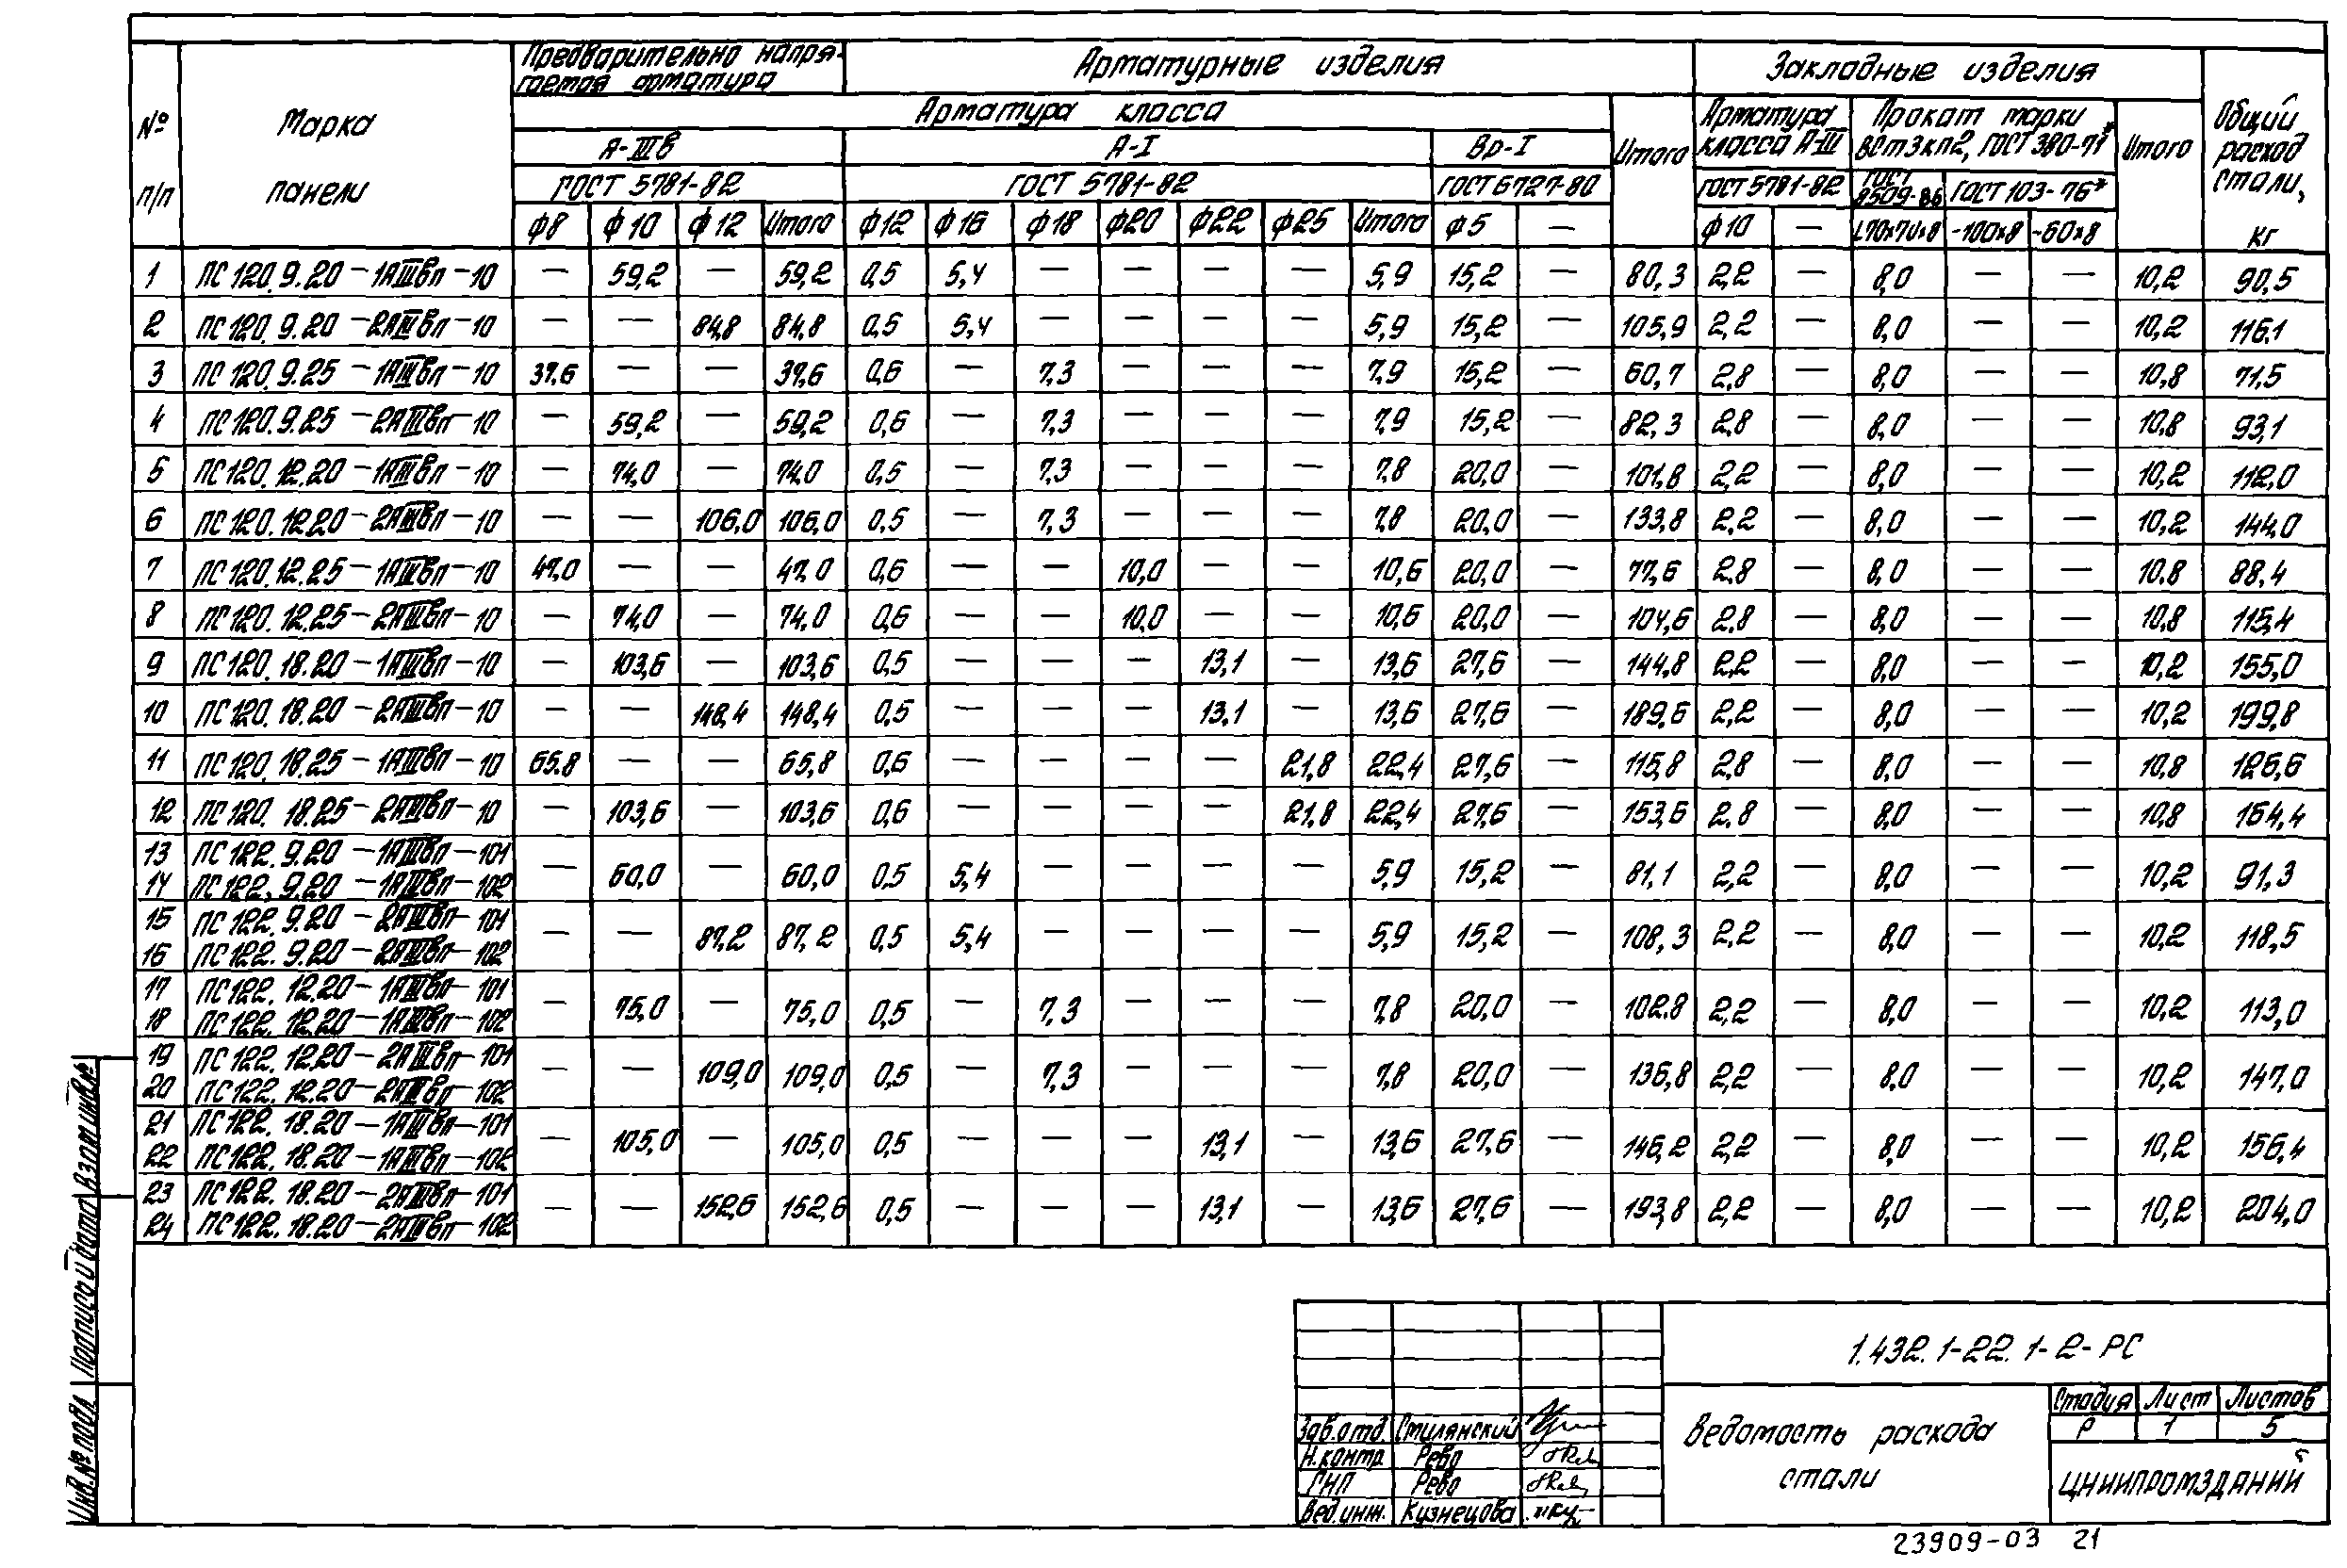 Предварительно напря-
гаемая арматура
Арматурные изделия
Закладные изделия
№
п/п
Марка
панели
Арматура класса
Итого
Арматура
класса А-III
Прокат марки
ВСт3кп2, ГОСТ 380-71*
Итого
Общий
расход
стали,
кг
А-IIIв
А-I
Вр-I
ГОСТ 5781-82
ГОСТ 5781-82
ГОСТ 6727-80
ГОСТ 5781-82
ГОСТ
8509-86
ГОСТ 103-76*
Ф8 Ф10 Ф12 Итого Ф12 Ф16 Ф18 Ф20 Ф22 Ф25 Итого Ф5 — Ф10 — L70х70х8 -100х8 -60х8
1 ПС120.9.20-1АIIIвп-10 — 59,2 — 59,2 0,5 5,4 — — — — 5,9 15,2 — 80,3 2,2 — 8,0 — — 10,2 90,5
2 ПС120.9.20-2АIIIвп-10 — — 84,8 84,8 0,5 5,4 — — — — 5,9 15,2 — 105,9 2,2 — 8,0 — — 10,2 116,1
3 ПС120.9.25-1АIIIвп-10 37,6 — — 37,6 0,6 — 7,3 — — — 7,9 15,2 — 60,7 2,8 — 8,0 — — 10,8 71,5
4 ПС120.9.25-2АIIIвп-10 — 59,2 — 59,2 0,6 — 7,3 — — — 7,9 15,2 — 82,3 2,8 — 8,0 — — 10,8 93,1
5 ПС120.12.20-1АIIIвп-10 — 74,0 — 74,0 0,5 — 7,3 — — — 7,8 20,0 — 101,8 2,2 — 8,0 — — 10,2 112,0
6 ПС120.12.20-2АIIIвп-10 — — 106,0 106,0 0,5 — 7,3 — — — 7,8 20,0 — 133,8 2,2 — 8,0 — — 10,2 144,0
7 ПС120.12.25-1АIIIвп-10 47,0 — — 47,0 0,6 — — 10,0 — — 10,6 20,0 — 77,6 2,8 — 8,0 — — 10,8 88,4
8 ПС120.12.25-2АIIIвп-10 — 74,0 — 74,0 0,6 — — 10,0 — — 10,6 20,0 — 104,6 2,8 — 8,0 — — 10,8 115,4
9 ПС120.18.20-1АIIIвп-10 — 103,6 — 103,6 0,5 — — — 13,1 — 13,6 27,6 — 144,8 2,2 — 8,0 — — 10,2 155,0
10 ПС120.18.20-2АIIIвп-10 — — 148,4 148,4 0,5 — — — 13,1 — 13,6 27,6 — 189,6 2,2 — 8,0 — — 10,2 199,8
11 ПС120.18.25-1АIIIвп-10 65,8 — — 65,8 0,6 — — — — 21,8 22,4 27,6 — 115,8 2,8 — 8,0 — — 10,8 126,6
12 ПС120.18.25-2АIIIвп-10 — 103,6 — 103,6 0,6 — — — — 21,8 22,4 27,6 — 153,6 2,8 — 8,0 — — 10,8 164,4
13 ПС122.9.20-1АIIIвп-101
14 ПС122.9.20-1АIIIвп-102
— 60,0 — 60,0 0,5 5,4 — — — — 5,9 15,2 — 81,1 2,2 — 8,0 — — 10,2 91,3
15 ПС122.9.20-2АIIIвп-101
16 ПС122.9.20-2АIIIвп-102
— — 87,2 87,2 0,5 5,4 — — — — 5,9 15,2 — 108,3 2,2 — 8,0 — — 10,2 118,5
17 ПС122.12.20-1АIIIвп-101
18 ПС122.12.20-1АIIIвп-102
— 75,0 — 75,0 0,5 — 7,3 — — — 7,8 20,0 — 102,8 2,2 — 8,0 — — 10,2 113,0
19 ПС122.12.20-2АIIIвп-101
20 ПС122.12.20-2АIIIвп-102
— — 109,0 109,0 0,5 — 7,3 — — — 7,8 20,0 — 136,8 2,2 — 8,0 — — 10,2 147,0
21 ПС122.18.20-1АIIIвп-101
22 ПС122.18.20-1АIIIвп-102
— 105,0 — 105,0 0,5 — — — 13,1 — 13,6 27,6 — 146,2 2,2 — 8,0 — — 10,2 156,4
23 ПС122.18.20-2АIIIвп-101
24 ПС122.18.20-2АIIIвп-102
— — 152,6 152,6 0,5 — — — 13,1 — 13,6 27,6 — 193,8 2,2 — 8,0 — — 10,2 204,0
Взам инв.№
Подпись и дата
Инв.№ подл
1.432.1-22.1-2-РС
Зав.отд. Стилянский
Н.контр. Рево
ГИП Рево
Вед.инж. Кузнецова
Ведомость расхода
стали
Стадия Лист Листов
Р 1 5
ЦНИИПРОМЗДАНИЙ
23909-03 21